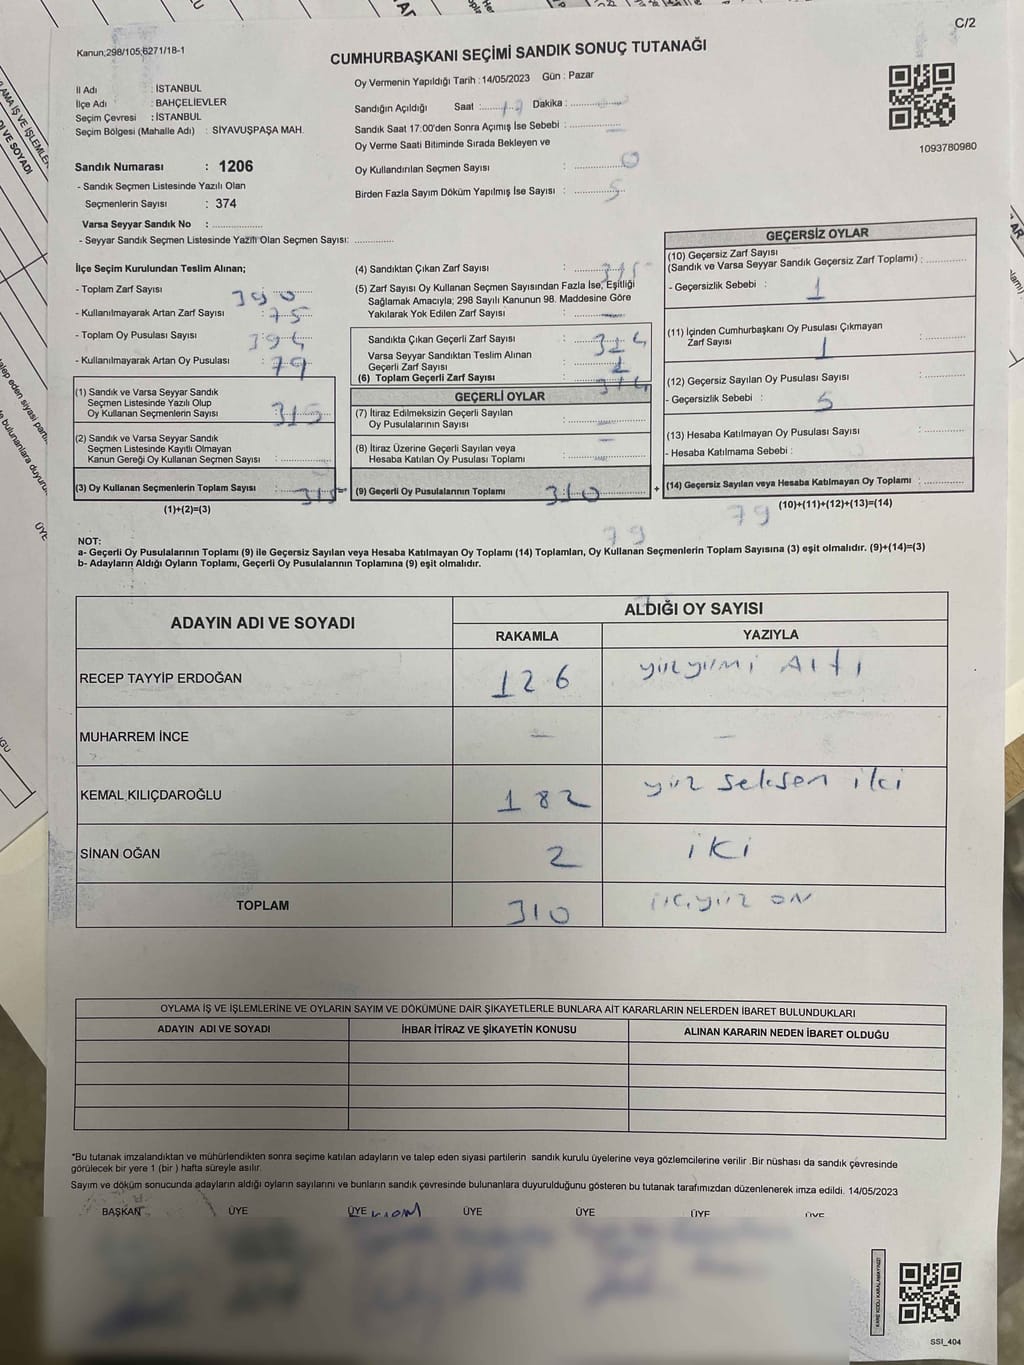 C/2
Kanun;298/105;6271/18-1
CUMHURBAŞKANI SEÇİMİ SANDIK SONUÇ TUTANAĞI
Oy Vermenin Yapıldığı Tarih : 14/05/2023 Gün : Pazar
İl Adı : İSTANBUL
İlçe Adı : BAHÇELİEVLER
Seçim Çevresi : İSTANBUL
Seçim Bölgesi (Mahalle Adı) : SİYAVUŞPAŞA MAH.
Sandığın Açıldığı Saat :....... Dakika :.............
Sandık Saat 17:00'den Sonra Açımış İse Sebebi : .............
Oy Verme Saati Bitiminde Sırada Bekleyen ve
Oy Kullandırılan Seçmen Sayısı : ............. 0
Birden Fazla Sayım Döküm Yapılmış İse Sayısı : ............. 5
1093780980
Sandık Numarası : 1206
- Sandık Seçmen Listesinde Yazılı Olan
Seçmenlerin Sayısı : 374
Varsa Seyyar Sandık No : .............
- Seyyar Sandık Seçmen Listesinde Yazılı Olan Seçmen Sayısı: .............
İlçe Seçim Kurulundan Teslim Alınan;
- Toplam Zarf Sayısı : 390
- Kullanılmayarak Artan Zarf Sayısı : 75
- Toplam Oy Pusulası Sayısı : 394
- Kullanılmayarak Artan Oy Pusulası : 79
(1) Sandık ve Varsa Seyyar Sandık
Seçmen Listesinde Yazılı Olup
Oy Kullanan Seçmenlerin Sayısı : 315
(2) Sandık ve Varsa Seyyar Sandık
Seçmen Listesinde Kayıtlı Olmayan
Kanun Gereği Oy Kullanan Seçmen Sayısı : .............
(3) Oy Kullanan Seçmenlerin Toplam Sayısı : 315
(1)+(2)=(3)
(4) Sandıktan Çıkan Zarf Sayısı : 315
(5) Zarf Sayısı Oy Kullanan Seçmen Sayısından Fazla İse, Eşitliği
Sağlamak Amacıyla; 298 Sayılı Kanunun 98. Maddesine Göre
Yakılarak Yok Edilen Zarf Sayısı : —
Sandıkta Çıkan Geçerli Zarf Sayısı : 314
Varsa Seyyar Sandıktan Teslim Alınan
Geçerli Zarf Sayısı :
(6) Toplam Geçerli Zarf Sayısı : 314
GEÇERLİ OYLAR
(7) İtiraz Edilmeksizin Geçerli Sayılan
Oy Pusulalarının Sayısı : —
(8) İtiraz Üzerine Geçerli Sayılan veya
Hesaba Katılan Oy Pusulası Toplamı : —
(9) Geçerli Oy Pusulalarının Toplamı 310 +
GEÇERSİZ OYLAR
(10) Geçersiz Zarf Sayısı
(Sandık ve Varsa Seyyar Sandık Geçersiz Zarf Toplamı) : .............
- Geçersizlik Sebebi : 1
(11) İçinden Cumhurbaşkanı Oy Pusulası Çıkmayan
Zarf Sayısı 1 : .............
(12) Geçersiz Sayılan Oy Pusulası Sayısı : .............
- Geçersizlik Sebebi : 5
(13) Hesaba Katılmayan Oy Pusulası Sayısı : .............
- Hesaba Katılmama Sebebi :
(14) Geçersiz Sayılan veya Hesaba Katılmayan Oy Toplamı : .............
(10)+(11)+(12)+(13)=(14)
79
79
NOT:
a- Geçerli Oy Pusulalarının Toplamı (9) ile Geçersiz Sayılan veya Hesaba Katılmayan Oy Toplamı (14) Toplamları, Oy Kullanan Seçmenlerin Toplam Sayısına (3) eşit olmalıdır. (9)+(14)=(3)
b- Adayların Aldığı Oyların Toplamı, Geçerli Oy Pusulalarının Toplamına (9) eşit olmalıdır.
ADAYIN ADI VE SOYADI
ALDIĞI OY SAYISI
RAKAMLA YAZIYLA
RECEP TAYYİP ERDOĞAN 126 yüz yirmi Altı
MUHARREM İNCE — —
KEMAL KILIÇDAROĞLU 182 yüz seksen iki
SİNAN OĞAN 2 iki
TOPLAM 310 üçyüz on
OYLAMA İŞ VE İŞLEMLERİNE VE OYLARIN SAYIM VE DÖKÜMÜNE DAİR ŞİKAYETLERLE BUNLARA AİT KARARLARIN NELERDEN İBARET BULUNDUKLARI
ADAYIN ADI VE SOYADI İHBAR İTİRAZ VE ŞİKAYETİN KONUSU ALINAN KARARIN NEDEN İBARET OLDUĞU
*Bu tutanak imzalandıktan ve mühürlendikten sonra seçime katılan adayların ve talep eden siyasi partilerin sandık kurulu üyelerine veya gözlemcilerine verilir .Bir nüshası da sandık çevresinde
görülecek bir yere 1 (bir ) hafta süreyle asılır.
Sayım ve döküm sonucunda adayların aldığı oyların sayılarını ve bunların sandık çevresinde bulunanlara duyurulduğunu gösteren bu tutanak tarafımızdan düzenlenerek imza edildi. 14/05/2023
BAŞKAN ÜYE ÜYE ÜYE ÜYE ÜYE ÜYE
KARE KODU KARALAMAYINIZ!
SSI_404